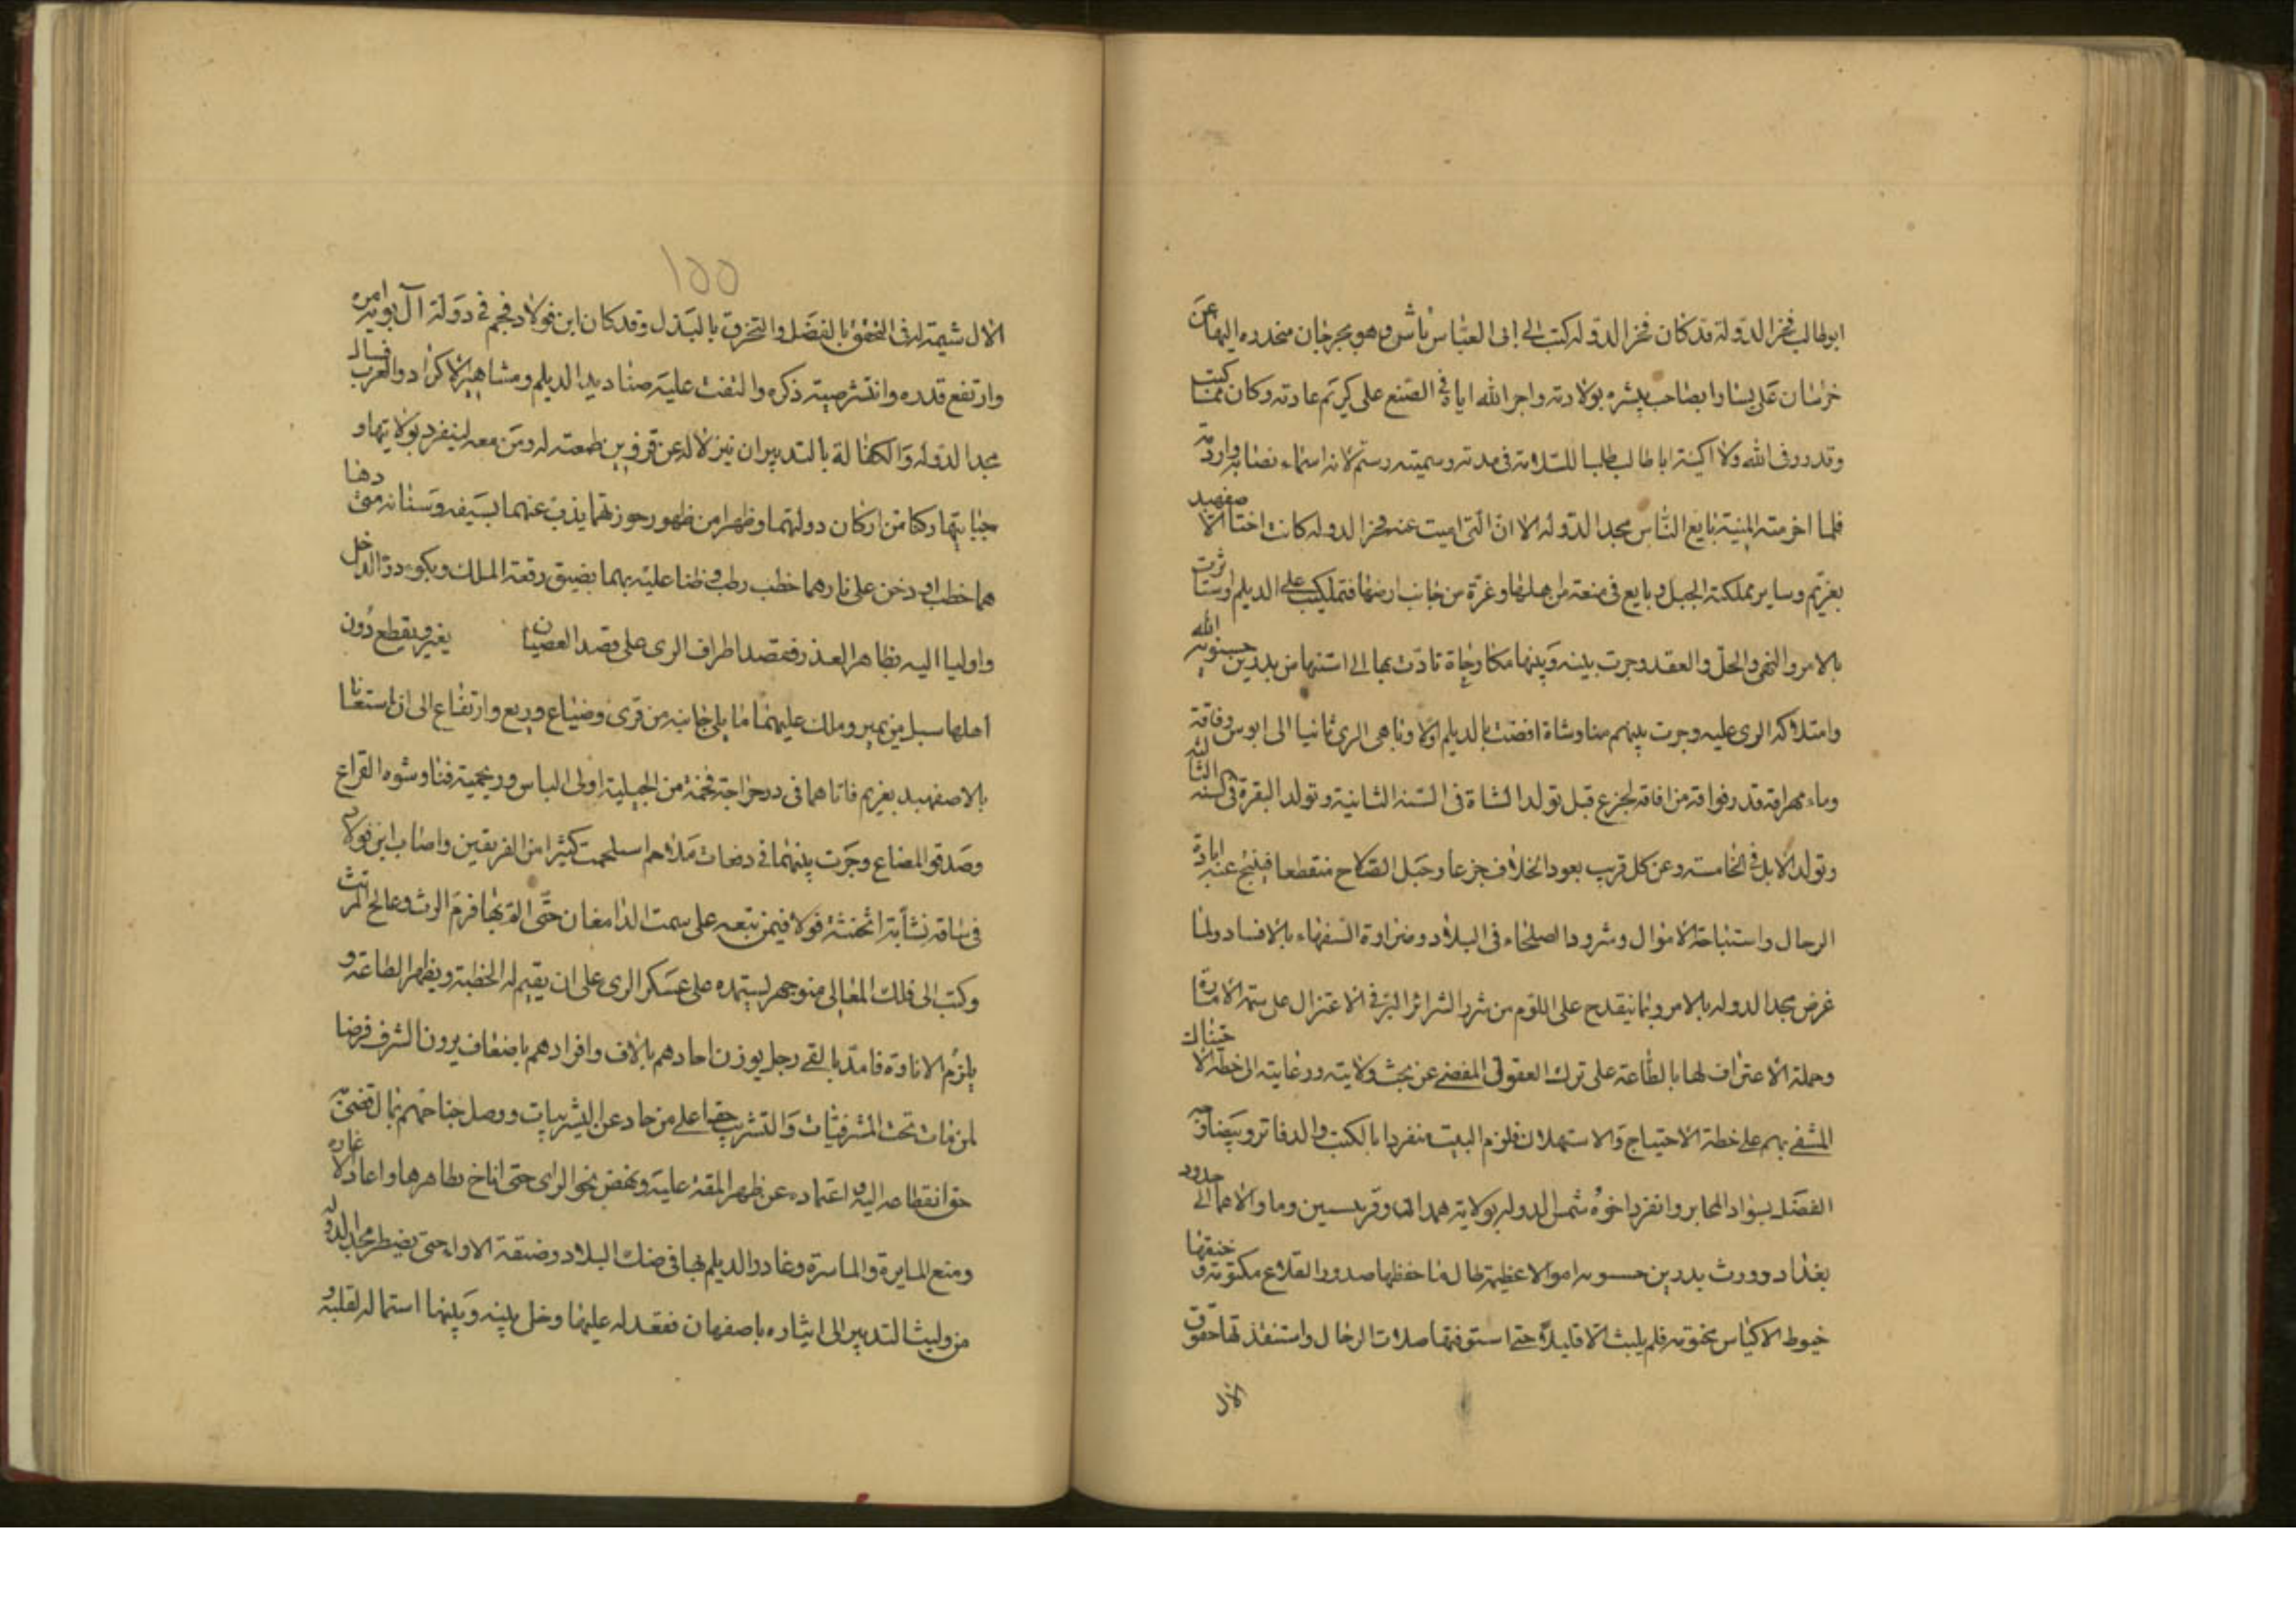 ابوطالب فخر الدولة قد كان فخر الدوله كتب الى ابى العباس تاش وهو بجرجان منحدره اليها عن
خرسان على بسا وابصاحب يبشره بولادته واجر الله اياه فى الصنع على كريم عادته وكان مما كتبت
وقد ردوف الله ولا اكنيته ابا طالب طلبا للسلامة فى مدته وسميته رستم لانه اسماء نصابه وارومته
فلما اخرمته المنية بايع الناس مجد الدوله الا ان التى اميت عنه فخر الدوله كانت اختا الاصفهبد
بفريم وساير مملكة الجبل وبايع فى منعة من اهلها وغرة من جانب ارضها فتملكت على الديلم واستاثرت
بالامر والنهى والحل والعقد وجرت بينه وبينها مكاوحاة تادت بها الى استنهاض بدر بن حسنويه الله
وامتلاكه الرى عليه وجرت بينهم مناوشاة افضت بالديلم اولا وباهى الرى ثانيا الى ابوس وفاقة
وماء مهراقة قدر فواقة من افاقة لجزع قبل تولد الشاة فى السنة الثانية وتولد البقرة فى السنة الثالثة
وتولد الابل فى الخامسة وعن كل قريب يعود الخلاف جزعا وحبل الصلاح منقطعا فينتج عنه ابادة
الرجال واستباحة الاموال وشرود الصلحاء فى البلاد ومنراوة السفهاء بالافساد ولما
غرض مجد الدوله بالامر وبما ينقدح على اللؤم من شرر الشرائر البتر فى الاعتزال على ستة الامارة
وحملة الاعتراف لها بالطاعة على ترك العقوق المفضى عن بحث ولايته ورعايته الى خطه الاختناك
المشفى بهم على خطة الاحتياج والاستهلاك فلزم البيت منفردا بالكتب والدفاتر وبيضا وجه
الفضل بسواد المحابر وانفرد اخوه شمس الدوله بولاية همدان وقرميسين وما والاهما الى حدود
بغداد وورث بدر بن حسنويه اموالا عظيمة طال ما حفظها صدور القلاع مكتومة وخنقها
خيوط الاكياس مختومة فلم يلبث الا قليلا حتى استوفتها صلات الرجال واستنفذتها حقوق
الال
١٥٥
الال شيمة له فى التخرق بالفضل والتحرق بالبذل وقد كان ابن فولاد فجم فى دولة آل بويه امره
وارتفع قدره وانتشر صيته ذكره والتفت عليه صناديد الديلم ومشاهير الاكراد والعرب فسال
مجد الدوله والكفالة بالتدبير ان ينزلا له عن قزوين طعمته له ومن معه لينفرد بولايتها و
جبايتها ركنا من اركان دولتهما وظهرا من ظهور حوزتهما يذب عنهما بسيفه وسنانه متى دهنا
هما خطب او دخن على نارهما خطب رطب فظنا عليه بهما بضيق رقعة الملك وبكوء درة الدخل
واوليا اليه بظاهر العذر فقصد اطراف الرى على قصد العصيان يغير ويقطع دون
اهلها سبل من يمير وملك عليهما ما يلى جانبه من قرى وضياع وريع وارتفاع الى ان استعانا
بالاصفهبد بفريم فاتاهما فى درجراجة فخمة من الجبلية اولى الباس ورنجمية فناوشوه القراع
وصدقوا المصاع وجرت بينهما فى دفعات ملاحم استلحمت كثيرا من الفريقين واصاب ابن فولاد
فى ساقه نشابة اثخنته فولا فيمن تبعه على سمت الدامغان حتى القى بها فرم الرث وعالج المرتث
وكتب الى فلك المعالى منوجهر ليستمده على عسكر الرى على ان يقيم له الخطبة ويظهر الطاعة و
يلزم الاتاوة فامده بالفى رجل يوزن احادهم بالاف وافرادهم باضعاف يرون الشرف فرضا
لمن مات تحت المشرفيات والتثريب حقا على من حاد عن اليثربيات ووصل جناحهم بمال قضى به
حق انقطاعه اليه واعتماده عن ظهر المقة عليه ونهض نحو الرى حتى اناخ بظاهرها واعاد لاغاره
ومنع المايرة والمامرة وغادر الديلم بها فى ضنك البلاد وضيقة الاواء حتى يضطر مجد الدوله
من وليت التدبير الى ايثاره باصفهان فعقد له عليها وخل بينه وبينها استمالة لقلبه و